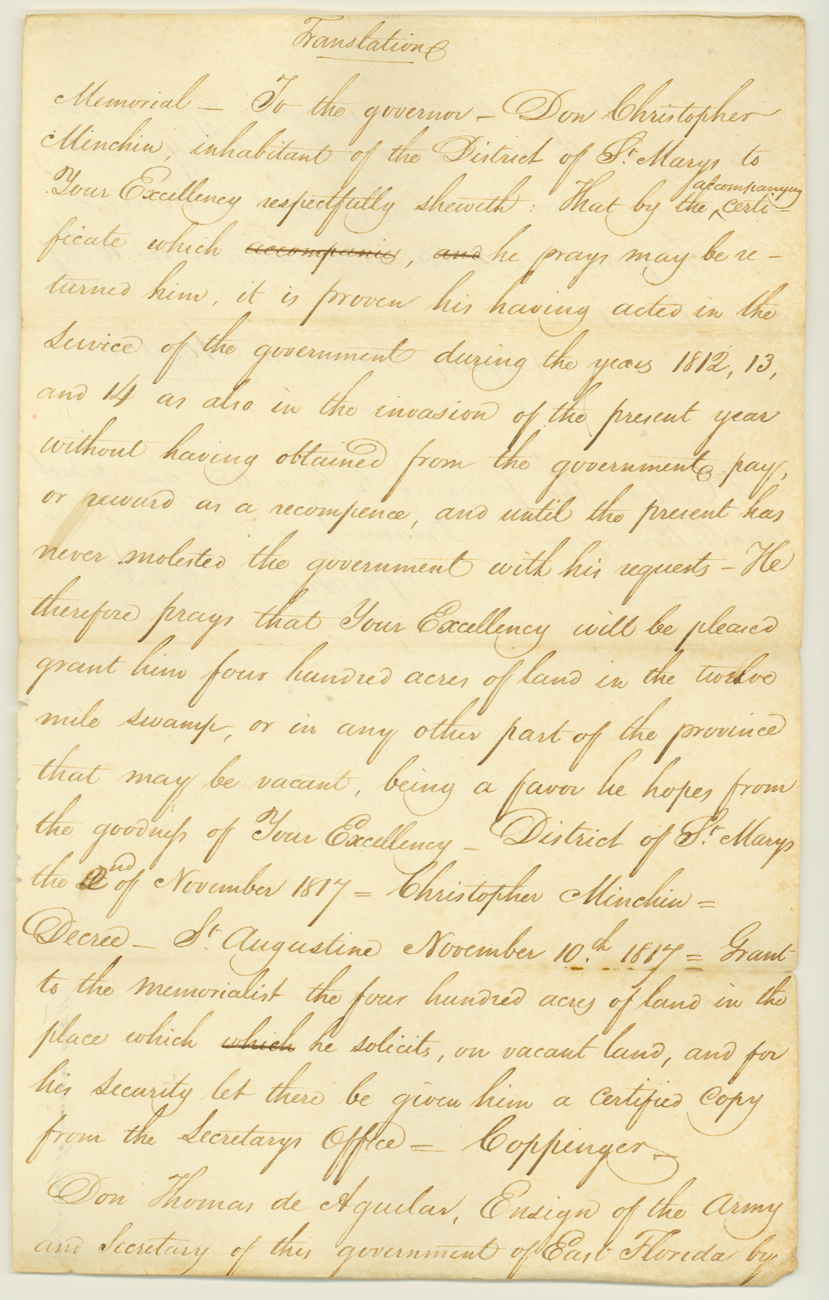 Translation
Memorial — To the governor — Don Christopher
Minchin, inhabitant of the District of St. Marys to
Your Excellency respectfully sheweth: That by the accompanying certi-
ficate which accompanies, and he prays may be re-
turned him, it is proven his having acted in the
service of the government during the years 1812, 13,
and 14 as also in the invasion of the present year
without having obtained from the government pay,
or reward as a recompence, and until the present has
never molested the government with his requests — He
therefore prays that Your Excellency will be pleased
grant him four hundred acres of land in the twelve
mile swamp, or in any other part of the province
that may be vacant, being a favor he hopes from
the goodness of Your Excellency — District of St. Marys
the 2nd of November 1817 = Christopher Minchin =
Decree — St. Augustine November 10.th 1817 = Grant
to the memorialist the four hundred acres of land in the
place which which he solicits, on vacant land, and for
his security let there be given him a certified copy
from the Secretarys Office = Coppinger —
Don Thomas de Aguilar, Ensign of the Army
and Secretary of this government of East Florida by